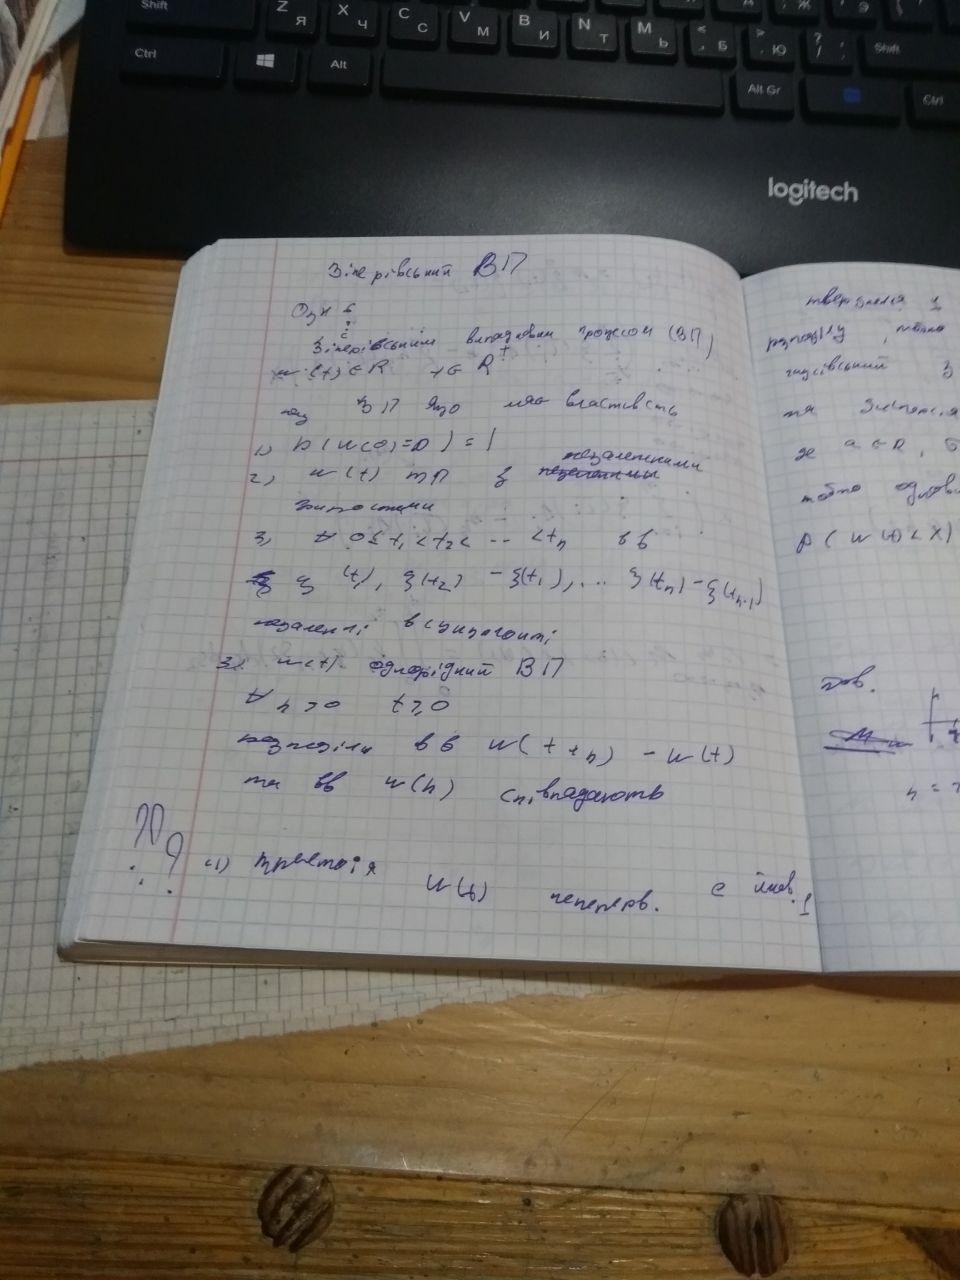 Shift
Z Я
X Ч
C С
V М
B И
N Т
M Ь
< Б
> Ю
? /
Shift
Ctrl
Alt
Alt Gr
Ctrl
logitech
Вінерівський ВП
Озн 6
Вінерівським випадковим процесом (ВП)
w(t) ∈ R t ∈ R⁺
ВП якщо має властивість
1) P(w(0)=0) = 1
2) w(t) ВП з незалежними
приростами
∀ 0≤t₁<t₂< ... <tₙ вв
ξ(t₁), ξ(t₂) - ξ(t₁), ... ξ(tₙ) - ξ(tₙ₋₁)
незалежні в сукупності
3) w(t) однорідний ВП
∀ h>0 t≥0
розподіли вв w(t+h) - w(t)
та вв w(h) співпадають
??
4) траєкторія w(t) неперерв. є ймов. 1
твердження 1
розподілу
гаусівський з
та
де a ∈ R, σ
тобто
P(w(t)<x)
Дов.
h =